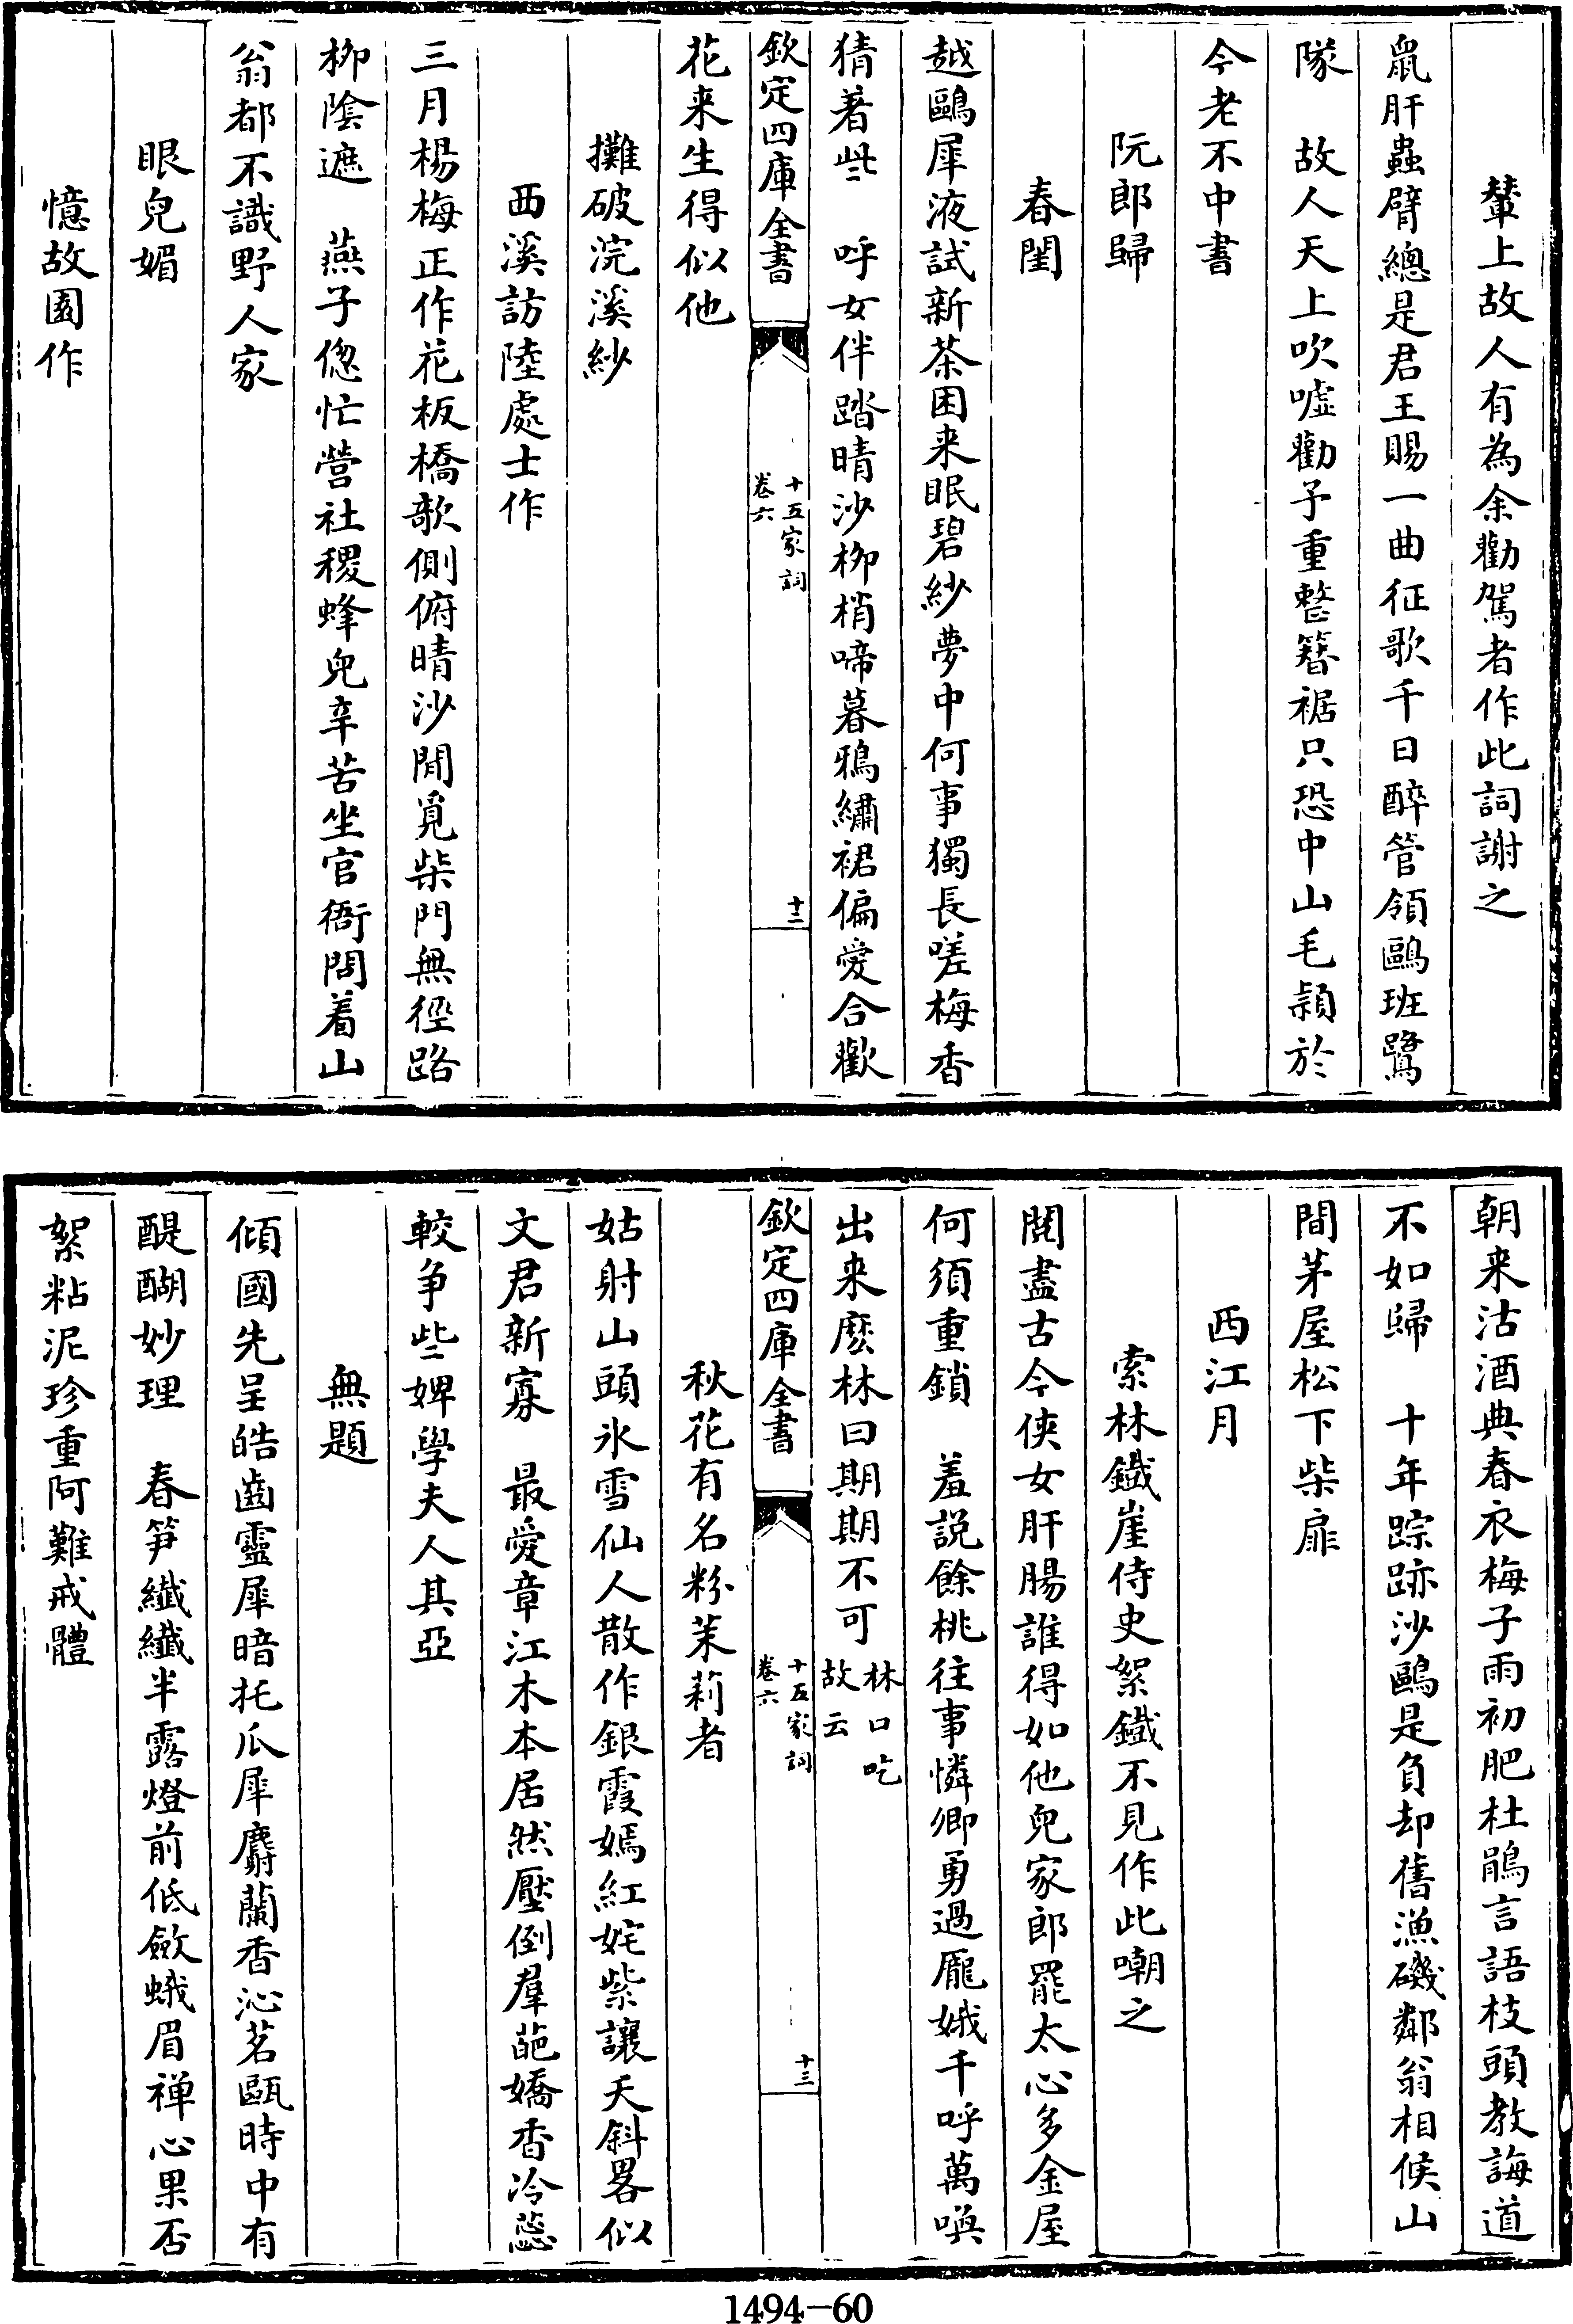 輦上故人有為余勸駕者作此詞謝之
鼠肝蟲臂總是君王賜一曲征歌千日醉管領鷗班鷺
隊　故人天上吹噓勸予重整簪裾只恐中山毛頴於
今老不中書
阮郎歸
春閨
越鷗犀液試新茶困来眠碧紗夢中何事獨長嗟梅香
猜著些　呼女伴踏晴沙栁梢啼暮鴉繡裙偏愛合歡
欽定四庫全書
十五家詞
卷六
十二
花来生得似他
攤破浣溪紗
西溪訪陸處士作
三月楊梅正作花板橋欹側俯晴沙閒覓柴門無徑路
栁陰遮　燕子偬忙營社稷蜂兒辛苦坐官衙問着山
翁都不識野人家
眼兒媚
憶故園作
朝来沽酒典春衣梅子雨初肥杜鵑言語枝頭教誨道
不如歸　十年踪跡沙鷗是負却舊漁磯鄰翁相候山
間茅屋松下柴扉
西江月
索林鐵崖侍史絮鐵不見作此嘲之
閲盡古今俠女肝腸誰得如他兒家郎罷太心多金屋
何須重鎖　羞説餘桃往事憐卿勇過龎娥千呼萬喚
出来麽林曰期期不可
林口吃
故云
欽定四庫全書
十五家詞
卷六
十三
秋花有名粉茉莉者
姑射山頭氷雪仙人散作銀霞嫣紅姹紫讓夭斜畧似
文君新寡　最愛章江木本居然壓倒羣葩嬌香冷蘂
較争些婢學夫人其亞
無題
傾國先呈皓齒靈犀暗托瓜犀麝蘭香沁茗甌時中有
醍醐妙理　春笋纖纖半露燈前低斂蛾眉禅心果否
絮粘泥珍重阿難戒體
1494-60